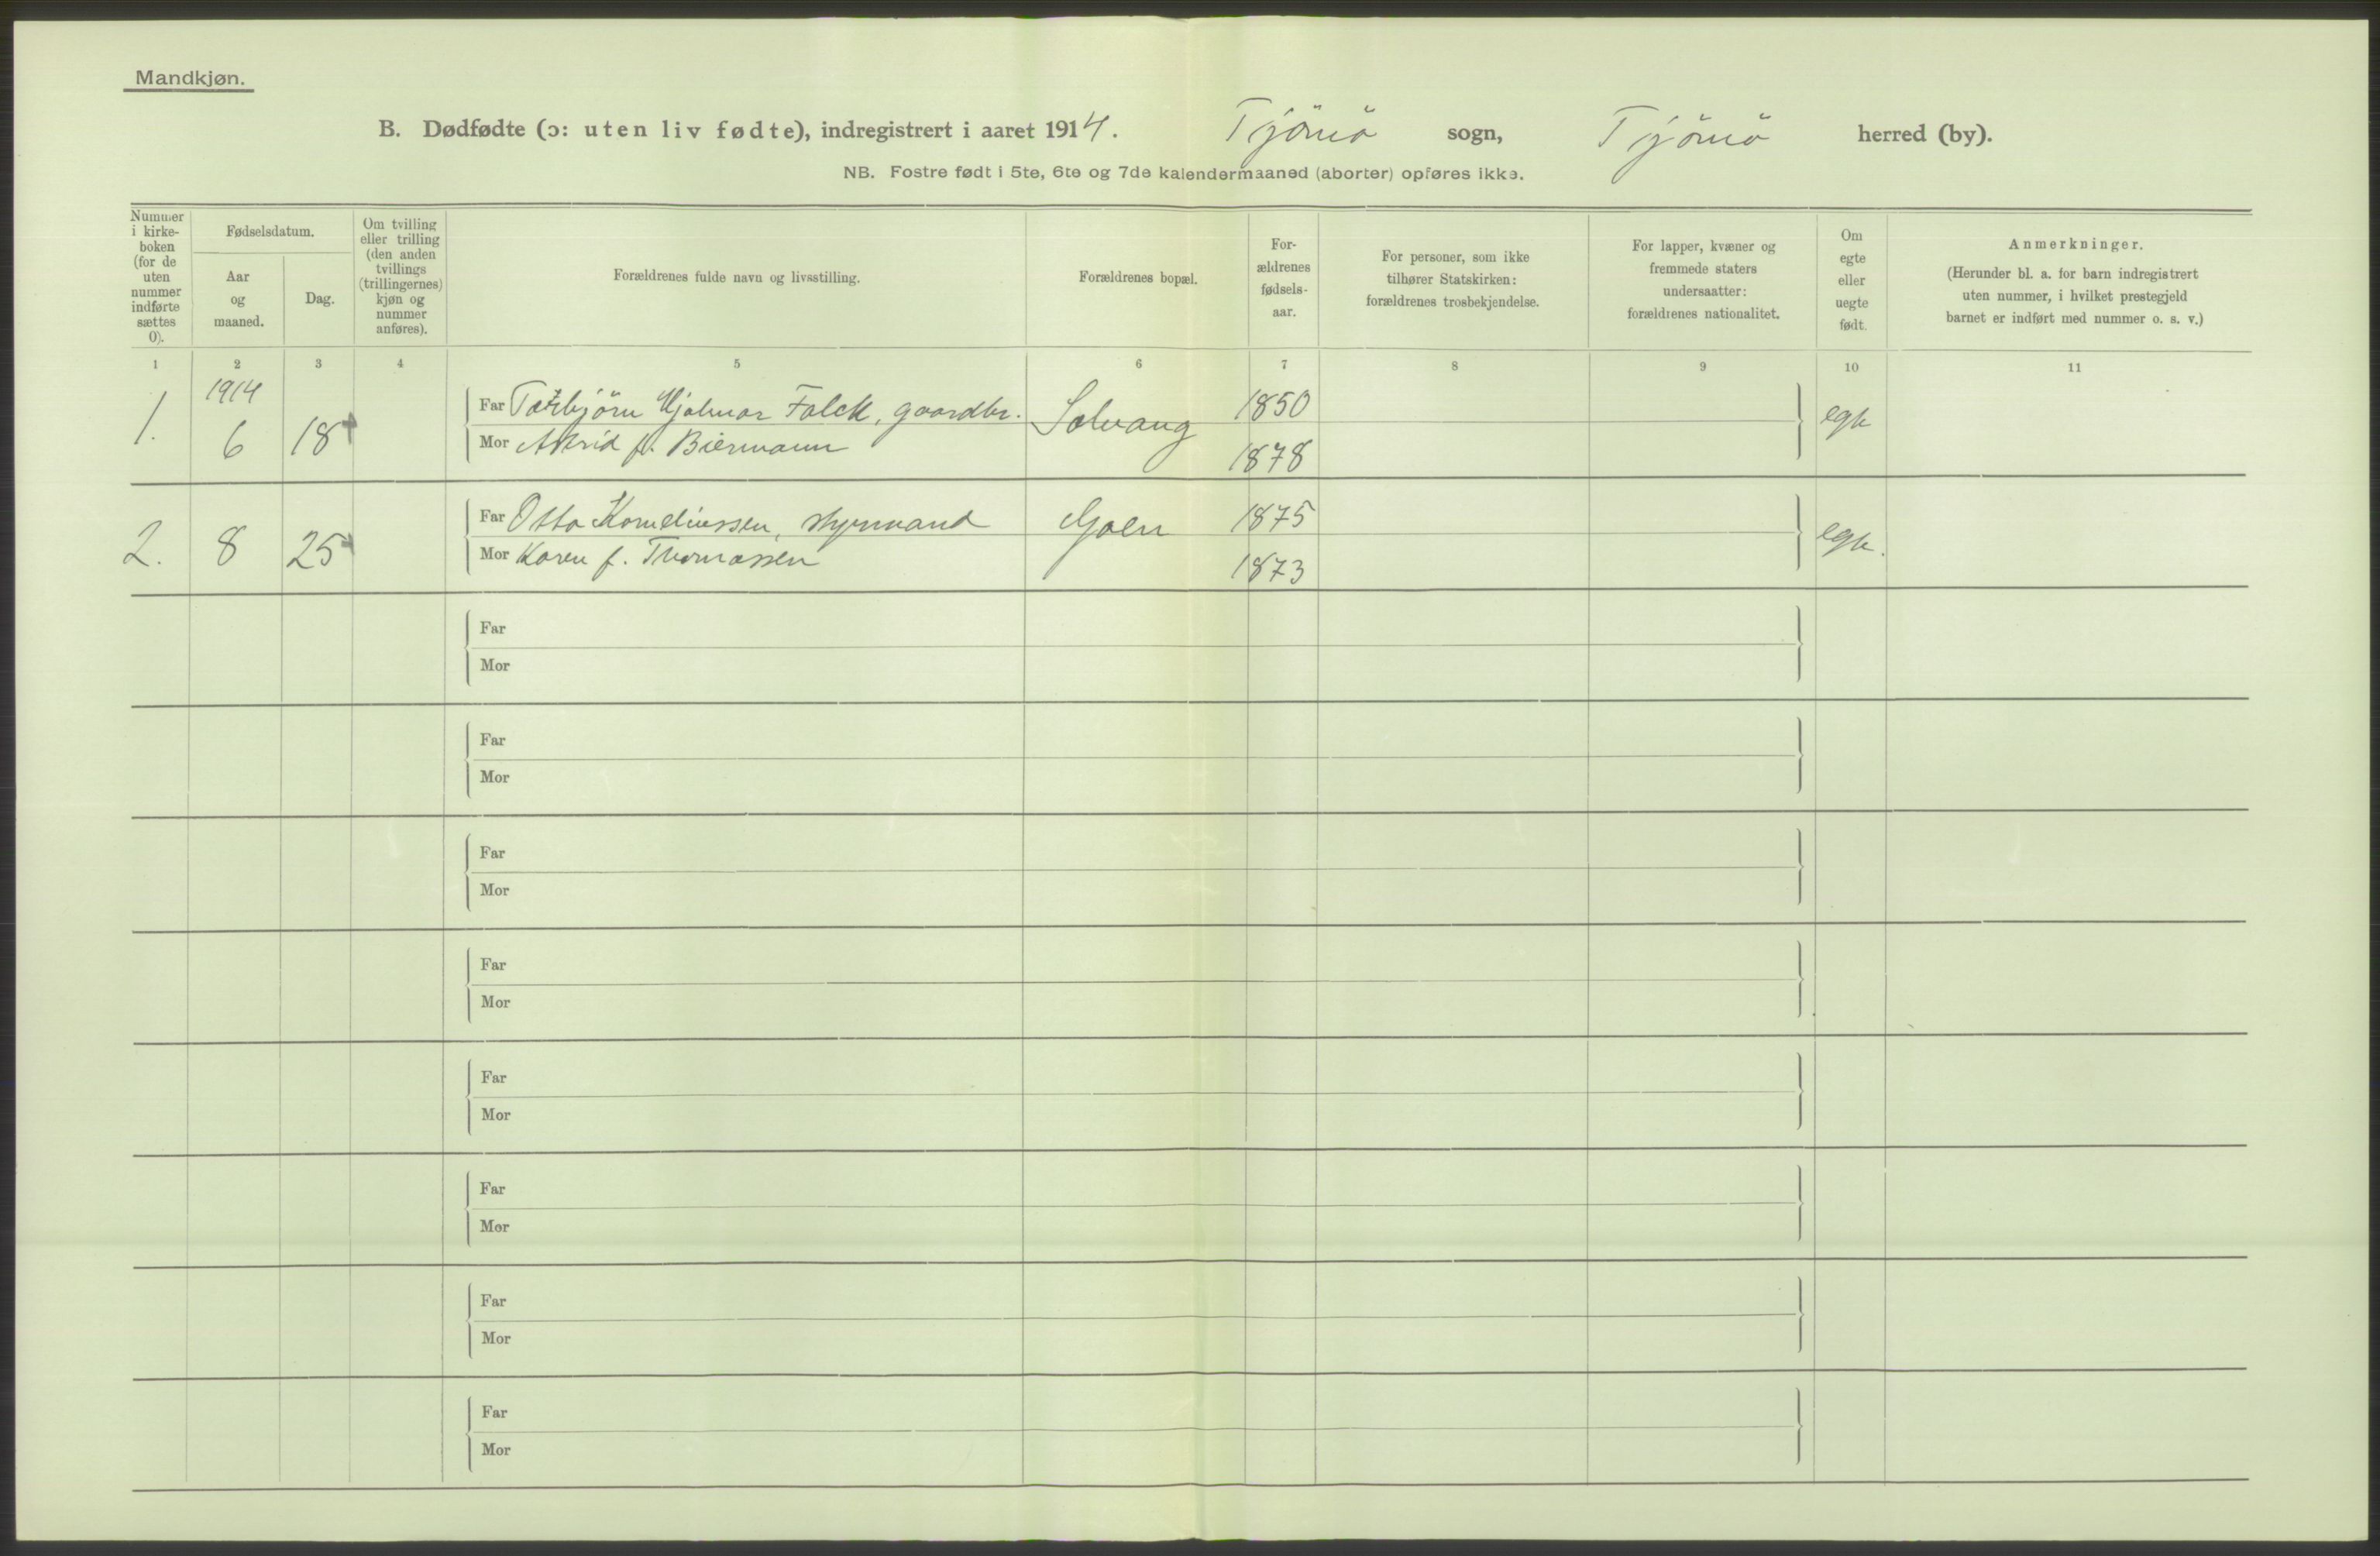 Mandkjøn.
B. Dødfødte (ɔ: uten liv fødte), indregistrert i aaret 1914. Tjömö sogn, Tjömö herred (by).
NB. Fostre født i 5te, 6te og 7de kalendermaaned (aborter) opføres ikke.
Nummer
i kirke-
boken
(for de
uten
nummer
indførte
sættes
0).
Fødselsdatum.
Aar
og
maaned.
Dag.
Om tvilling
eller trilling
(den anden
tvillings
(trillingernes)
kjøn og
nummer
anføres).
Forældrenes fulde navn og livsstilling.
Forældrenes bopæl.
For-
ældrenes
fødsels-
aar.
For personer, som ikke
tilhører Statskirken:
forældrenes trosbekjendelse.
For lapper, kvæner og
fremmede staters
undersaatter:
forældrenes nationalitet.
Om
egte
eller
uegte
født.
Anmerkninger.
(Herunder bl. a. for barn indregistrert
uten nummer, i hvilket prestegjeld
barnet er indført med nummer o. s. v.)
1 2 3 4 5 6 7 8 9 10 11
1914
1. 6 18 Far Torbjörn Hjalmar Falck, gaardbr. Solvang 1850 egte
Mor Astrid f. Biermann 1878
2. 8 25 Far Otto Korneliussen, styrmand 1875 egte.
Mor Karen f. Thomassen 1873
Far
Mor
Far
Mor
Far
Mor
Far
Mor
Far
Mor
Far
Mor
Far
Mor
Far
Mor